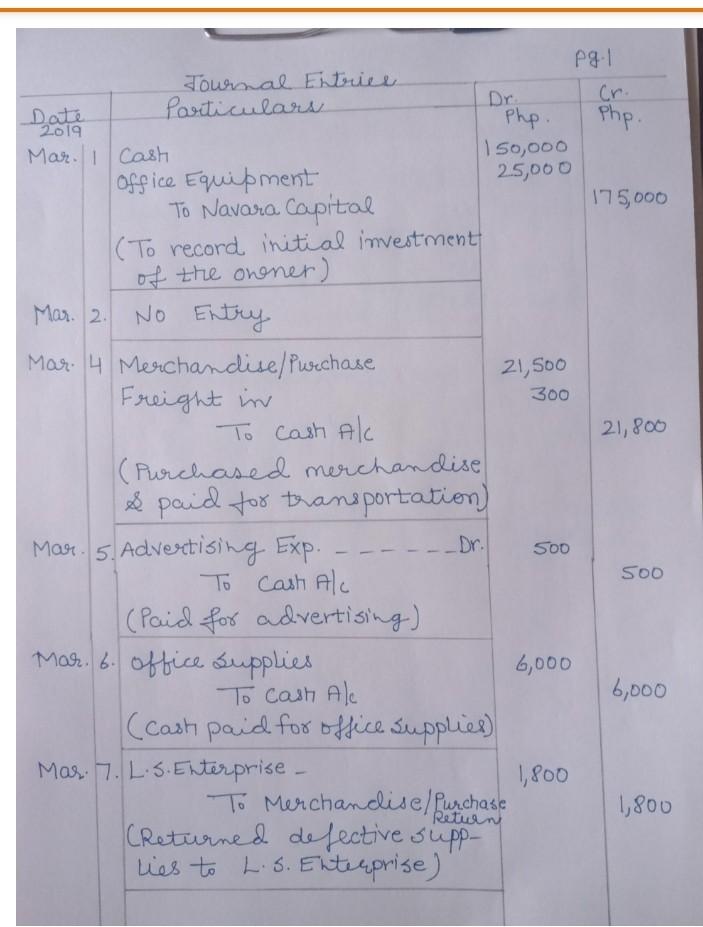 Pg.1
Journal Entries
Date Particulars Dr. Cr.
2019 Php. Php.
Mar. 1 Cash 150,000
Office Equipment 25,000
To Navara Capital 175,000
(To record initial investment
of the owner)
Mar. 2. No Entry
Mar. 4 Merchandise/Purchase 21,500
Freight in 300
To Cash A/c 21,800
(Purchased merchandise
& paid for transportation)
Mar. 5. Advertising Exp. - - - - - - Dr. 500
To Cash A/c 500
(Paid for advertising)
Mar. 6. Office Supplies 6,000
To Cash A/c 6,000
(Cash paid for office supplies)
Mar. 7. L.S. Enterprise - 1,800
To Merchandise/Purchase Return 1,800
(Returned defective supp-
lies to L.S. Enterprise)